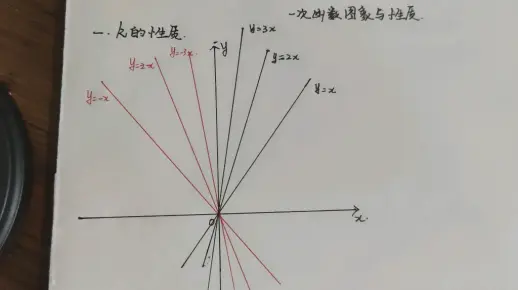 一次函数图象与性质
一.k的性质.
y=-x
y=-2x
y=-3x
y
y=3x
y=2x
y=x
0
x